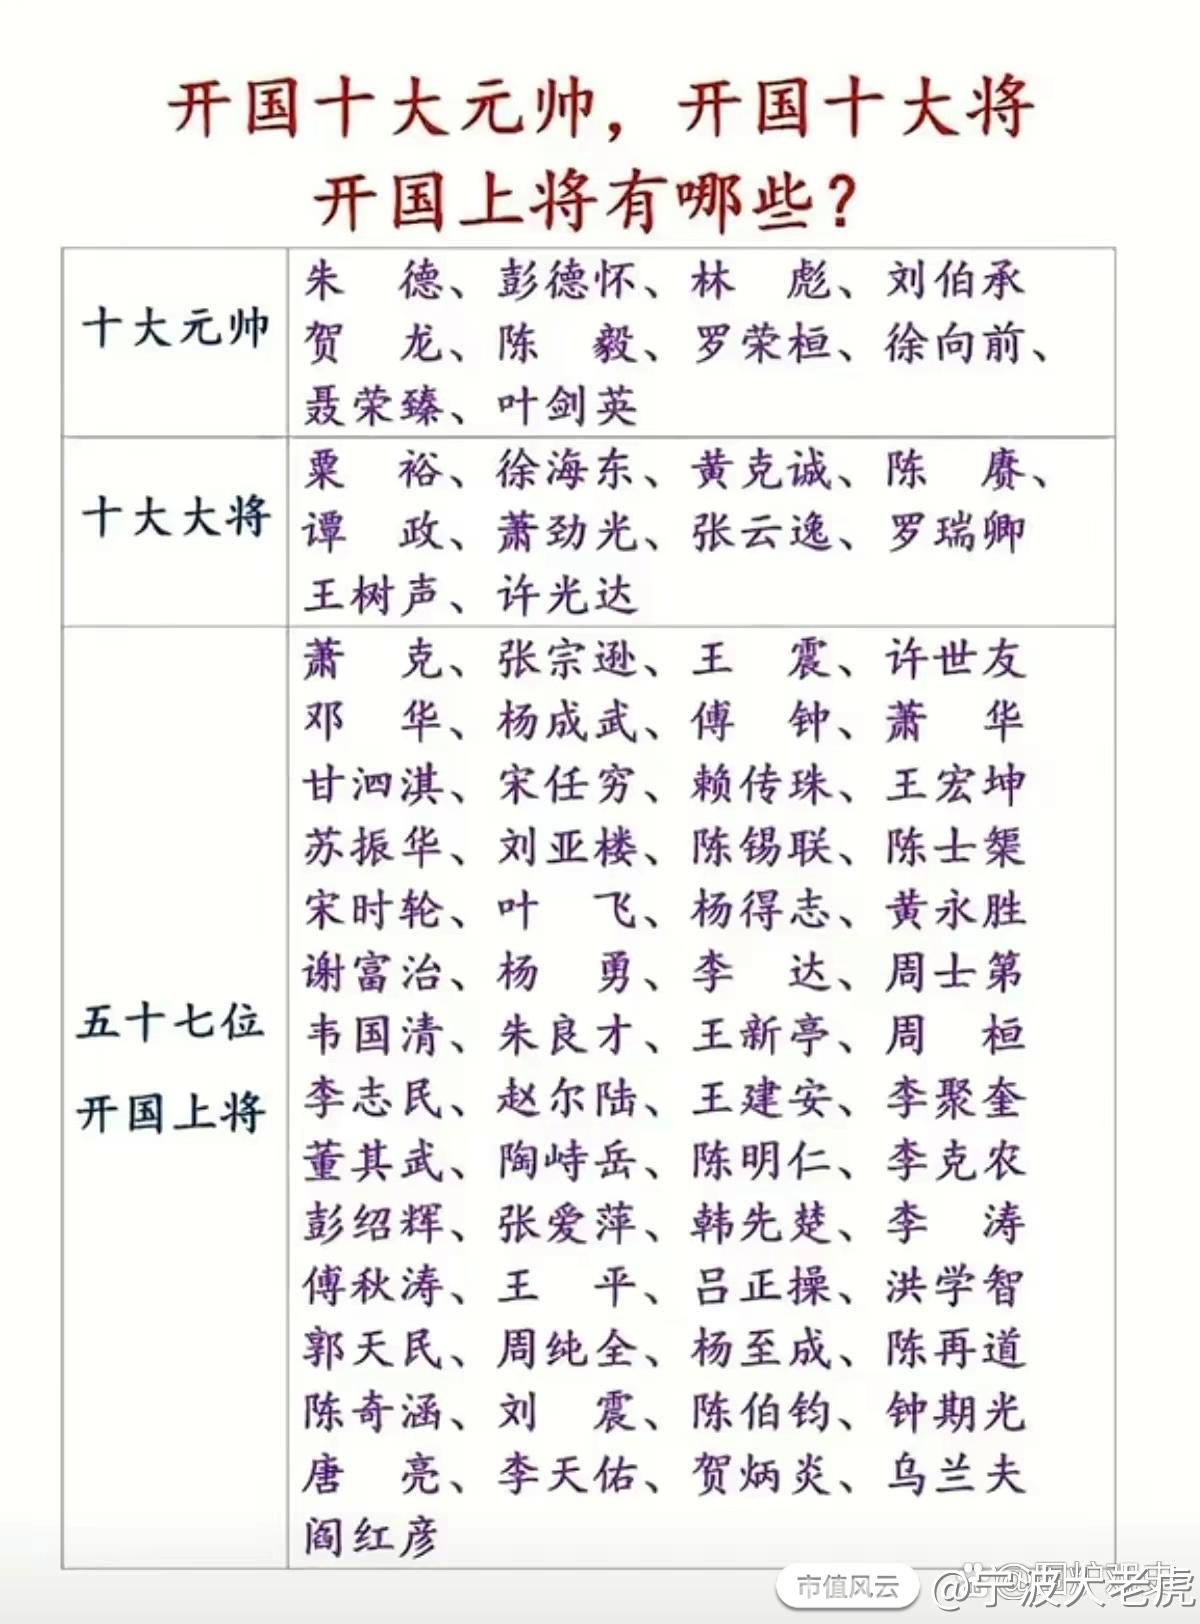 开国十大元帅，开国十大将
开国上将有哪些？
十大元帅
朱　德、彭德怀、林　彪、刘伯承
贺　龙、陈　毅、罗荣桓、徐向前、
聂荣臻、叶剑英
十大大将
粟　裕、徐海东、黄克诚、陈　赓、
谭　政、萧劲光、张云逸、罗瑞卿
王树声、许光达
五十七位
开国上将
萧　克、张宗逊、王　震、许世友
邓　华、杨成武、傅　钟、萧　华
甘泗淇、宋任穷、赖传珠、王宏坤
苏振华、刘亚楼、陈锡联、陈士榘
宋时轮、叶　飞、杨得志、黄永胜
谢富治、杨　勇、李　达、周士第
韦国清、朱良才、王新亭、周　桓
李志民、赵尔陆、王建安、李聚奎
董其武、陶峙岳、陈明仁、李克农
彭绍辉、张爱萍、韩先楚、李　涛
傅秋涛、王　平、吕正操、洪学智
郭天民、周纯全、杨至成、陈再道
陈奇涵、刘　震、陈伯钧、钟期光
唐　亮、李天佑、贺炳炎、乌兰夫
阎红彦
市值风云
@宁波大老虎